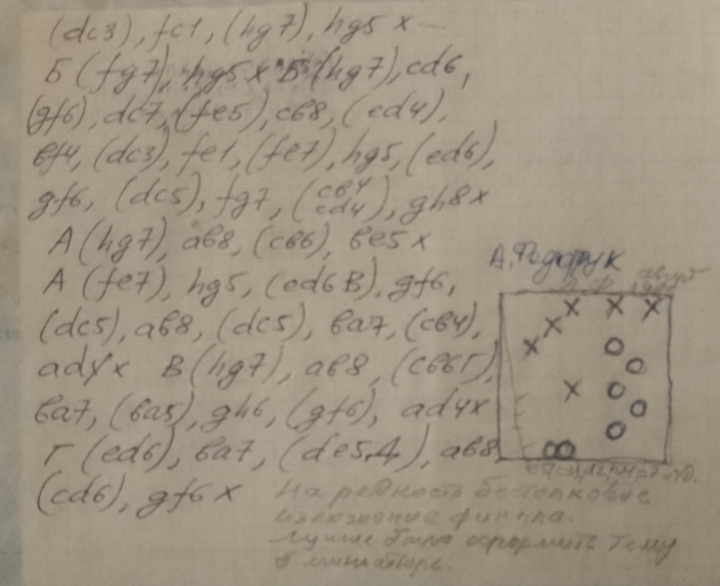 (dc3), fc1, (hg7), hg5 x —
Б (fg7), hg5 x Б (hg7), cd6,
(gf6), dc7, (fe5), cb8, (ed4),
ef4, (dc3), fe1, (fe7), hg5, (ed6),
gf6, (dc5), fg7, (cb4
cd4), gh8 x
А (hg7), ab8, (cb6), be5 x
А (fe7), hg5, (ed6 В), gf6,
(dc5), ab8, (dc5), ba7, (cb4),
ad4 x В (hg7), ab8, (cb6 Г),
ba7, (ba5), gh6, (gf6), ad4 x
Г (ed6), ba7, (de5, Д), ab8
(cd6), gf6 x
А. Федорук
август
На редкость бестолковое
изложение финала.
Лучше было оформить тему
в миниатюре.